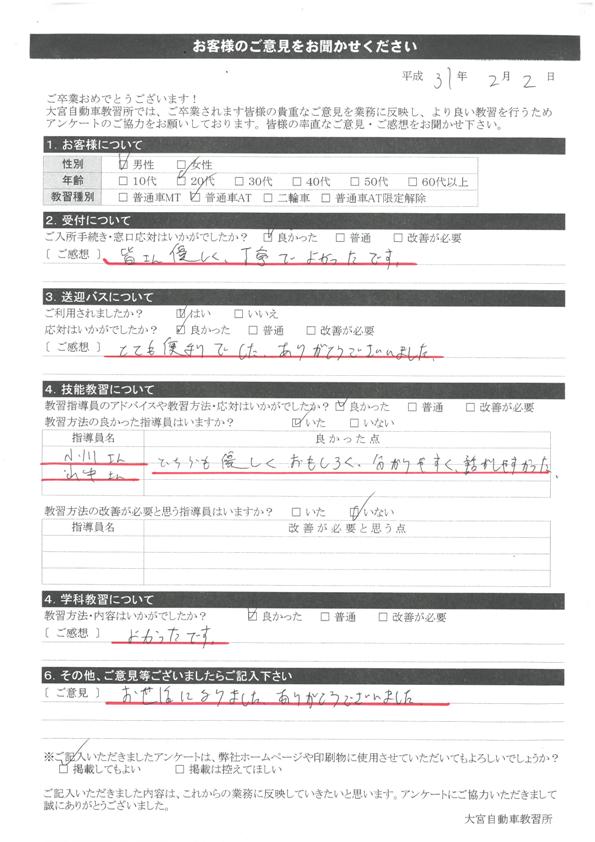 お客様のご意見をお聞かせください
平成 31年 2月 2日
ご卒業おめでとうございます！
大宮自動車教習所では、ご卒業されます皆様の貴重なご意見を業務に反映し、より良い教習を行うため
アンケートのご協力をお願いしております。皆様の率直なご意見・ご感想をお聞かせ下さい。
1. お客様について
性別 ☑男性 □女性
年齢 □10代 ☑20代 □30代 □40代 □50代 □60代以上
教習種別 □普通車MT ☑普通車AT □二輪車 □普通車AT限定解除
2. 受付について
ご入所手続き・窓口応対はいかがでしたか？ ☑良かった □普通 □改善が必要
［ご感想］ 皆さん優しく、丁寧でよかったです。
3. 送迎バスについて
ご利用されましたか？ ☑はい □いいえ
応対はいかがでしたか？ ☑良かった □普通 □改善が必要
［ご感想］ とても便利でした。ありがとうございました。
4. 技能教習について
教習指導員のアドバイスや教習方法・応対はいかがでしたか？ ☑良かった □普通 □改善が必要
教習方法の良かった指導員はいますか？ ☑いた □いない
指導員名 良かった点
小川さん どちらも優しくおもしろく、分かりやすく、話かしやすかった。
さん
教習方法の改善が必要と思う指導員はいますか？ □いた ☑いない
指導員名 改善が必要と思う点
4. 学科教習について
教習方法・内容はいかがでしたか？ ☑良かった □普通 □改善が必要
［ご感想］ よかったです。
6. その他、ご意見等ございましたらご記入下さい
［ご意見］ お世話になりました。ありがとうございました。
※ご記入いただきましたアンケートは、弊社ホームページや印刷物に使用させていただいてもよろしいでしょうか？
☑掲載してもよい □掲載は控えてほしい
ご記入いただきました内容は、これからの業務に反映していきたいと思います。アンケートにご協力いただきまして
誠にありがとうございました。
大宮自動車教習所